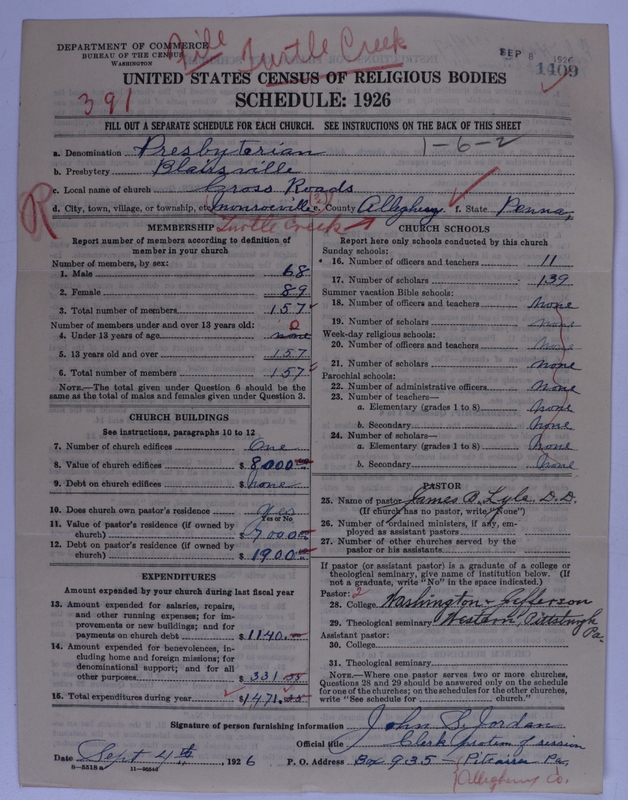 DEPARTMENT OF COMMERCE
BUREAU OF THE CENSUS
WASHINGTON
File Turtle Creek
SEP 8 1926
1409
391
UNITED STATES CENSUS OF RELIGIOUS BODIES
SCHEDULE: 1926
FILL OUT A SEPARATE SCHEDULE FOR EACH CHURCH. SEE INSTRUCTIONS ON THE BACK OF THIS SHEET
1-6-2
a. Denomination Presbyterian
b. Presbytery Blairsville
c. Local name of church Cross Roads
R
d. City, town, village, or township, etc. Monroeville e. County Allegheny f. State Penna,
Turtle Creek
MEMBERSHIP
Report number of members according to definition of member in your church
Number of members, by sex:
1. Male 68
2. Female 89
3. Total number of members 157
Number of members under and over 13 years old: 0
4. Under 13 years of age none
5. 13 years old and over 157
6. Total number of members 157
NOTE.—The total given under Question 6 should be the same as the total of males and females given under Question 3.
CHURCH BUILDINGS
See instructions, paragraphs 10 to 12
7. Number of church edifices One
8. Value of church edifices $ 8000
9. Debt on church edifices $ None
10. Does church own pastor's residence Yes
Yes or No
11. Value of pastor's residence (if owned by church) $ 7000
12. Debt on pastor's residence (if owned by church) $ 1900
EXPENDITURES
Amount expended by your church during last fiscal year
13. Amount expended for salaries, repairs, and other running expenses; for improvements or new buildings; and for payments on church debt $ 1140.
14. Amount expended for benevolences, including home and foreign missions; for denominational support; and for all other purposes $ 331
15. Total expenditures during year $ 1471.
CHURCH SCHOOLS
Report here only schools conducted by this church
Sunday schools:
16. Number of officers and teachers 11
17. Number of scholars 139
Summer vacation Bible schools:
18. Number of officers and teachers None
19. Number of scholars None
Week-day religious schools:
20. Number of officers and teachers None
21. Number of scholars None
Parochial schools:
22. Number of administrative officers None
23. Number of teachers—
a. Elementary (grades 1 to 8) None
b. Secondary None
24. Number of scholars—
a. Elementary (grades 1 to 8) None
b. Secondary None
PASTOR
25. Name of pastor James A. Lyle, D.D.
(If church has no pastor, write "None")
26. Number of ordained ministers, if any, employed as assistant pastors
27. Number of other churches served by the pastor or his assistants
If pastor (or assistant pastor) is a graduate of a college or theological seminary, give name of institution below. (If not a graduate, write "No" in the space indicated.)
Pastor: 2
28. College Washington & Jefferson
29. Theological seminary Western, Pittsburgh Pa.
Assistant pastor:
30. College
31. Theological seminary
NOTE.—Where one pastor serves two or more churches, Questions 28 and 29 should be answered only on the schedule for one of the churches; on the schedules for the other churches, write "See schedule for church."
Signature of person furnishing information John S. Jordan
Official title Clerk protem of session
Date Sept 4th, 1926 P. O. Address Box 935 - Pitcairn Pa.
8-5518 a
Allegheny Co.